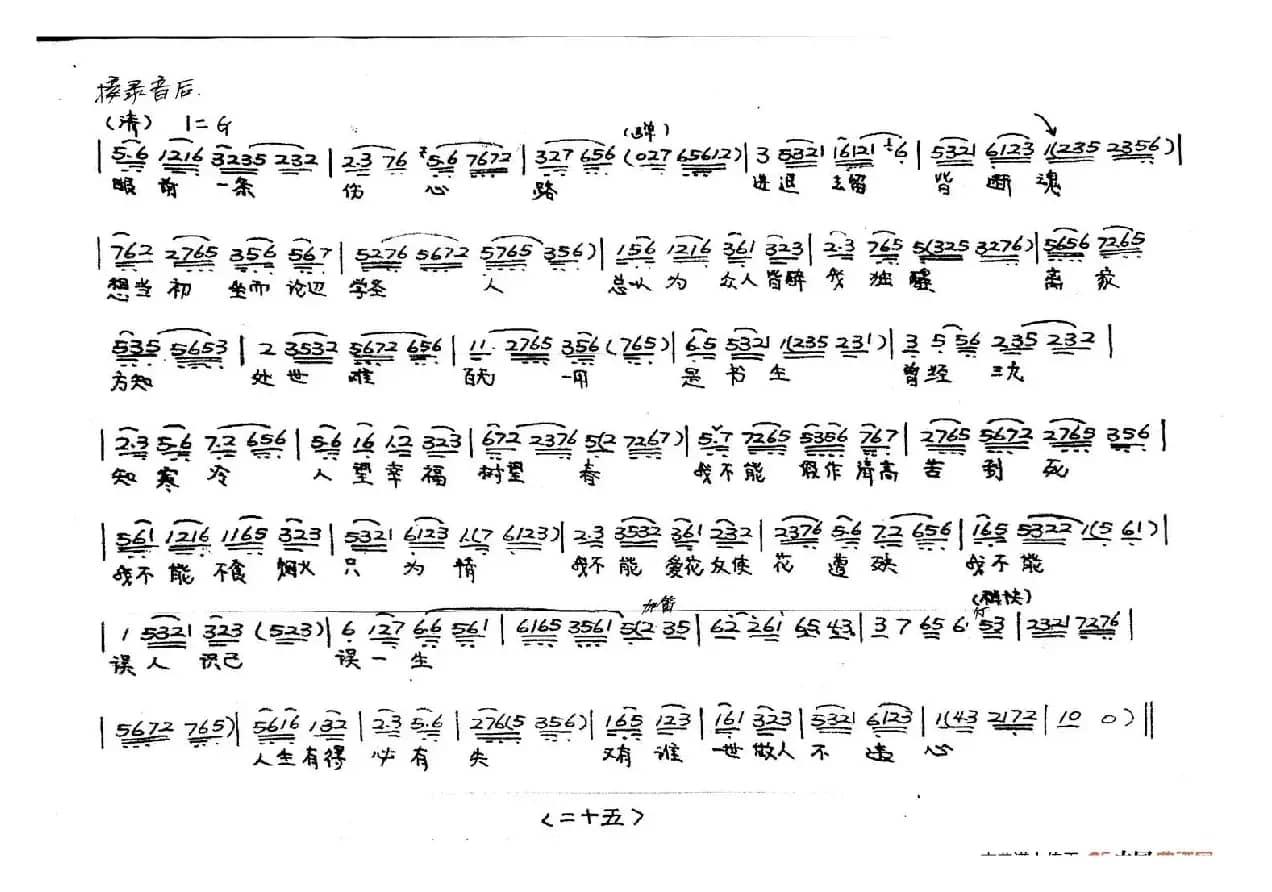 接录音后
(清) 1=G
| 5·6 1216 3235 232 | 2·3 76 5·6 7672 | 327 656 (027 65612) | 3 5321 16121 6 | 5321 6123 1(235 2356) |
眼前一条 伤 心 路 进退去留 皆 断 魂
| 762 2765 356 567 | 5276 5672 5765 356) | 156 1216 361 323 | 2·3 765 5(325 3276) | 5656 7265
想当初 坐而论边 学圣 人 总以为 众人皆醉 我独醒 离 家
535 5653 | 2 3532 5672 656 | 11· 2765 356 (765) | 6·5 5321 1(235 231) | 3 5 56 235 232 |
方知 处世难 百无一用 是书生 曾经三九
| 2·3 5·6 7·2 656 | 5·6 16 1·2 323 | 672 2376 5(2 7267) | 5·7 7265 5356 767 | 2765 5672 2765 356 |
知寒冷 人望幸福 树望 春 我不能 假作清高 苦 到 死
561 1216 1165 323 | 5321 6123 1·(7 6123) | 2·3 3532 361 232 | 2376 5·6 7·2 656 | 165 5322 1(5 61) |
我不能 不食烟火 只 为 情 我不能 爱花反使 花 遭 殃 我不能
加笛 (稍快)
| 1 5321 323 (523) | 6 127 66 561 | 6165 3561 5(2 35 | 62 261 65 43 | 3 7 65 6· 53 | 2321 7276 |
误人 误己 误一生
| 5672 765) | 5616 132 | 2·3 5·6 | 276(5 356) | 165 123 | 161 323 | 5321 6123 | 1(43 2172 | 10 0) ‖
人生有得 必有 失 又有谁 一世做人 不 违 心
〈二十五〉